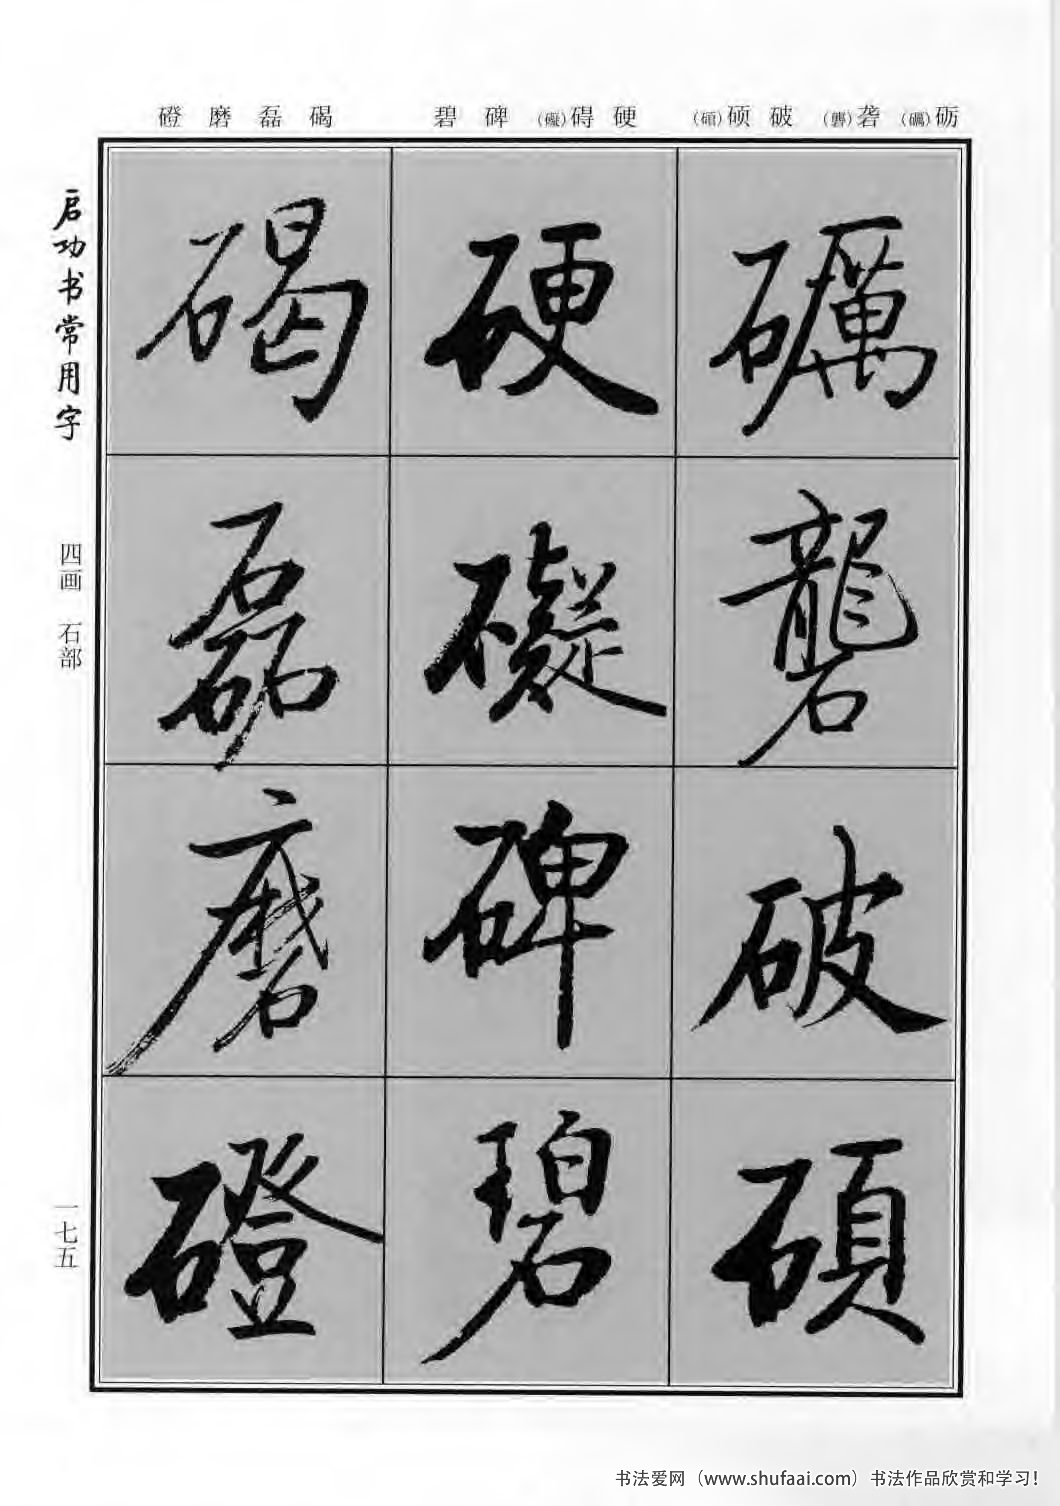 砺（礪）砻（礱）破硕（碩）
硬碍（礙）碑碧
碣磊磨磴
礪礱破碩
硬礙碑碧
碣磊磨磴
启功书常用字
四画 石部
一七五
书法爱网（www.shufaai.com）书法作品欣赏和学习！